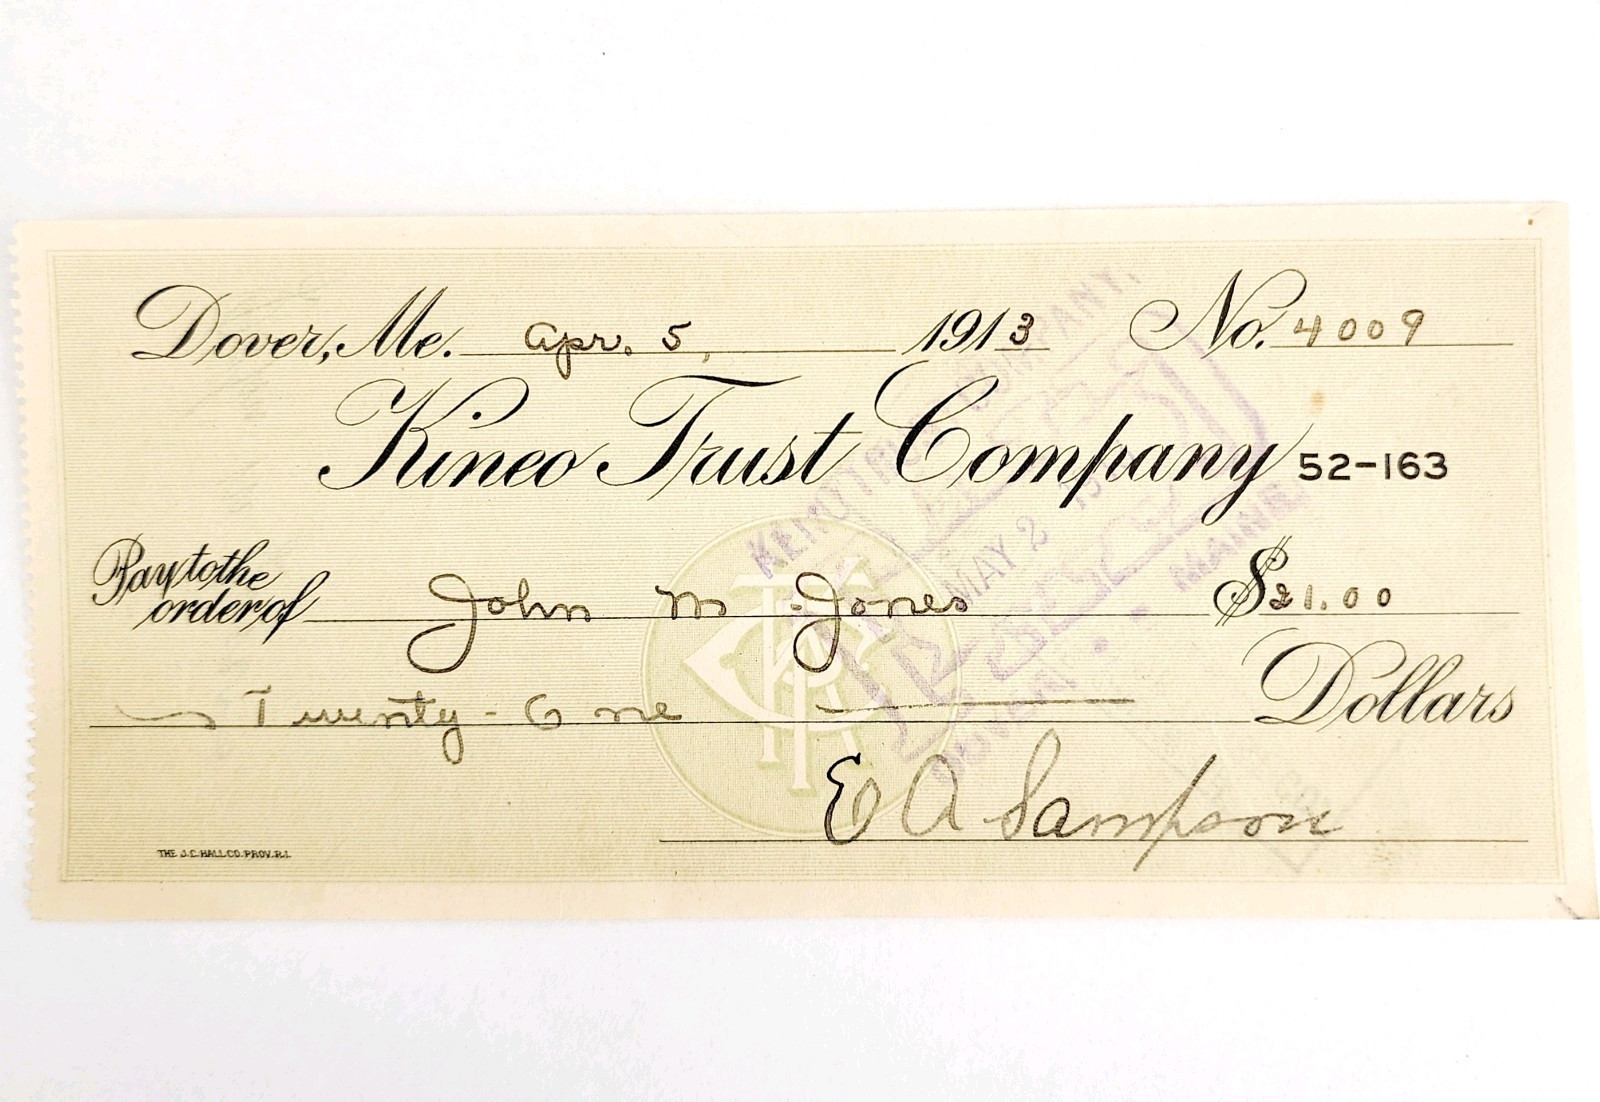 Dover, Me. Apr. 5, 1913 No. 4009
Kineo Trust Company 52-163
Pay to the order of John M. Jones $21.00
Twenty-One Dollars
E A Sampson
THE J.C. HALL CO. PROV. R.I.
COMPANY.
MAY 2
MAINE.